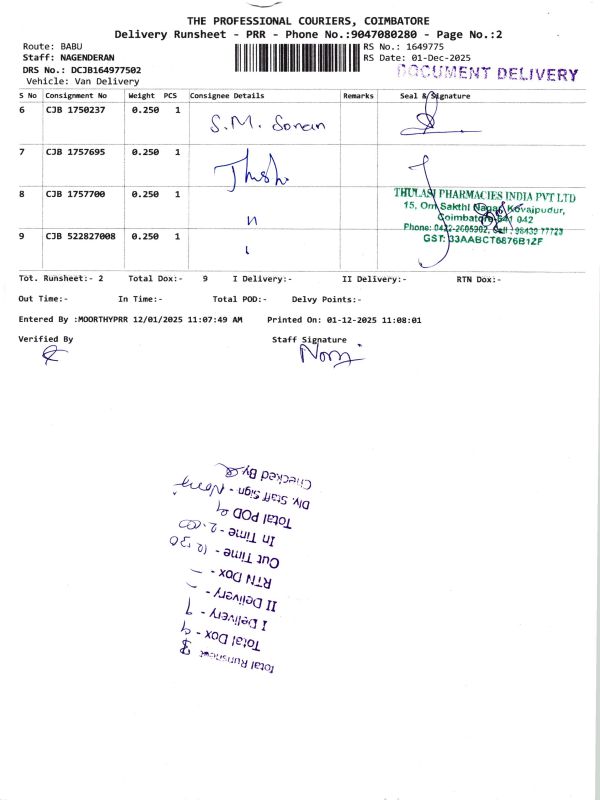 THE PROFESSIONAL COURIERS, COIMBATORE
Delivery Runsheet - PRR - Phone No.:9047080280 - Page No.:2
Route: BABU
RS No.: 1649775
Staff: NAGENDERAN
RS Date: 01-Dec-2025
DRS No.: DCJB164977502
DOCUMENT DELIVERY
Vehicle: Van Delivery
S No Consignment No Weight PCS Consignee Details Remarks Seal & Signature
6 CJB 1750237 0.250 1 S.M.
7 CJB 1757695 0.250 1
8 CJB 1757700 0.250 1 "
9 CJB 522827008 0.250 1
THULASI PHARMACIES INDIA PVT LTD
15, Om Sakthi Nagar, Kovaipudur,
Coimbatore-641 042
Phone: 0422-2605902, Cell: 98439 77723
GST: 33AABCT6876B1ZF
Tot. Runsheet:- 2 Total Dox:- 9 I Delivery:- II Delivery:- RTN Dox:-
Out Time:- In Time:- Total POD:- Delvy Points:-
Entered By :MOORTHYPRR 12/01/2025 11:07:49 AM Printed On: 01-12-2025 11:08:01
Verified By Staff Signature
Total Runsheet
Total Dox - 9
I Delivery - 9
II Delivery - –
RTN Dox - –
Out Time - 12.30
In Time - 2.00
Total POD 9
Dly. Staff Sign -
Checked By